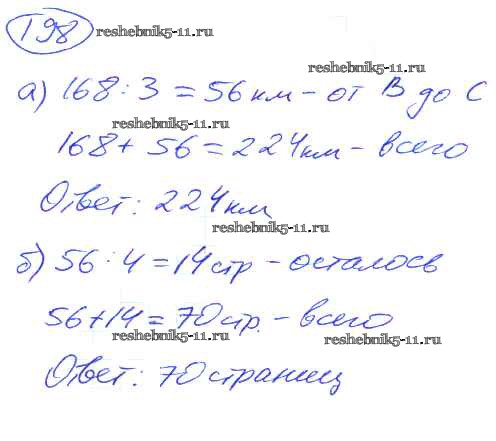 198 reshebnik5-11.ru
reshebnik5-11.ru
а) 168 : 3 = 56 км – от В до С
reshebnik5-11.ru
168 + 56 = 224 км – всего
Ответ: 224 км
reshebnik5-11.ru
б) 56 : 4 = 14 стр – осталось
56 + 14 = 70 стр. – всего
reshebnik5-11.ru
reshebnik5-11.ru
Ответ: 70 страниц